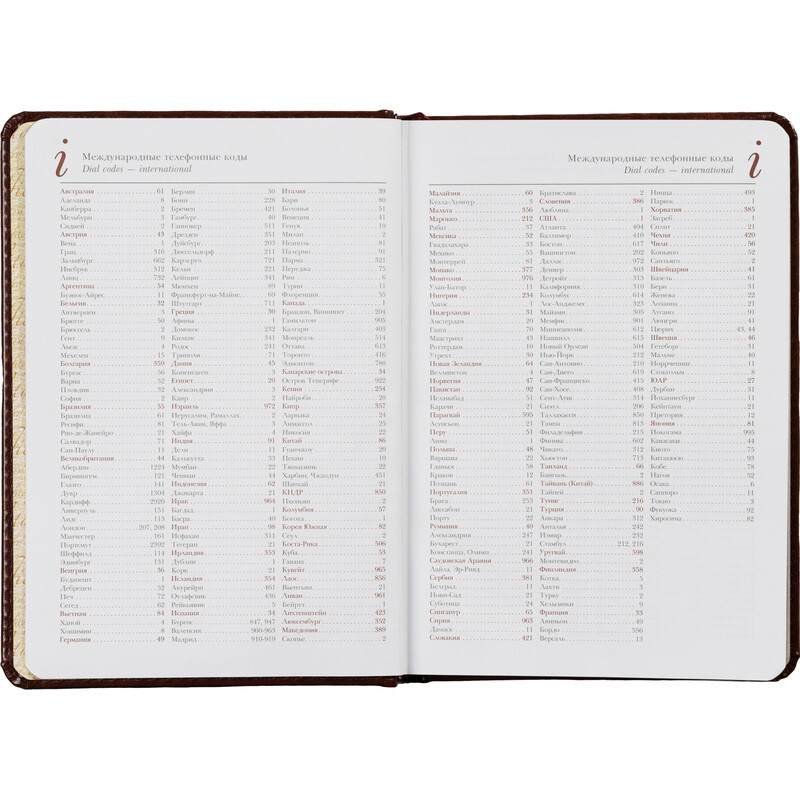 i
Международные телефонные коды
Dial codes — international
Австралия 61
Аделаида 8
Канберра 2
Мельбурн 3
Сидней 2
Австрия 43
Вена 1
Грац 316
Зальцбург 662
Инсбрук 512
Линц 732
Аргентина 54
Буэнос-Айрес 11
Бельгия 32
Антверпен 3
Брюгге 50
Брюссель 2
Гент 9
Льеж 4
Мехелен 15
Болгария 359
Бургас 56
Варна 52
Пловдив 32
София 2
Бразилия 55
Бразилиа 61
Ресифи 81
Рио-де-Жанейро 21
Салвадор 71
Сан-Паулу 11
Великобритания 44
Абердин 1224
Бирмингем 121
Глазго 141
Дувр 1304
Кардифф 2920
Ливерпуль 151
Лидс 113
Лондон 207, 208
Манчестер 161
Портсмут 2392
Шеффилд 114
Эдинбург 131
Венгрия 36
Будапешт 1
Дебрецен 52
Печ 72
Сегед 62
Вьетнам 84
Ханой 4
Хошимин 8
Германия 49
Берлин 30
Бонн 228
Бремен 421
Гамбург 40
Ганновер 511
Дрезден 351
Дуйсбург 203
Дюссельдорф 211
Карлсруэ 721
Кельн 221
Лейпциг 341
Мюнхен 89
Франкфурт-на-Майне 69
Штутгарт 711
Греция 30
Афины 1
Домокос 232
Килкис 341
Родос 241
Триполи 71
Дания 45
Копенгаген 3
Египет 20
Александрия 3
Каир 2
Израиль 972
Иерусалим, Рамаллах 2
Тель-Авив, Яффа 3
Хайфа 4
Индия 91
Дели 11
Калькутта 33
Мумбаи 22
Ченнаи 44
Индонезия 62
Джакарта 21
Ирак 964
Багдад 1
Басра 40
Иран 98
Исфахан 311
Тегеран 21
Ирландия 353
Дублин 1
Корк 21
Исландия 354
Акурейри 461
Оулафсвик 436
Рейкьявик 5
Испания 34
Бургос 847, 947
Валенсия 960-963
Мадрид 910-919
Италия 39
Бари 80
Болонья 51
Венеция 41
Генуя 10
Милан 2
Неаполь 81
Палермо 91
Парма 521
Переджа 75
Рим 6
Турин 11
Флоренция 55
Канада 1
Брандон, Виннипег 204
Гамильтон 905
Калгари 403
Монреаль 514
Оттава 613
Торонто 416
Эдмонтон 780
Канарские острова 34
Остров Тенерифе 922
Кения 254
Найроби 20
Кипр 357
Ларнака 24
Лимассол 25
Никосия 22
Китай 86
Гуанчжоу 20
Пекин 10
Тяньцзинь 22
Харбин, Чжаодун 451
Шанхай 21
КНДР 850
Пхеньян 2
Колумбия 57
Богота 1
Корея Южная 82
Сеул 2
Коста-Рика 506
Куба 53
Гавана 7
Кувейт 965
Лаос 856
Вьентьян 21
Ливан 961
Бейрут 1
Лихтенштейн 423
Люксембург 352
Македония 389
Скопье 2
Международные телефонные коды
Dial codes — international
i
Малайзия 60
Куала-Лумпур 3
Мальта 356
Марокко 212
Рабат 37
Мексика 52
Гвадалахара 33
Мехико 55
Монтеррей 81
Монако 377
Монголия 976
Улан-Батор 11
Нигерия 234
Лагос 1
Нидерланды 31
Амстердам 20
Гаага 70
Маастрихт 43
Роттердам 10
Утрехт 30
Новая Зеландия 64
Веллингтон 4
Норвегия 47
Пакистан 92
Исламабад 51
Карачи 21
Парагвай 595
Асунсьон 21
Перу 51
Лима 1
Польша 48
Варшава 22
Гданьск 58
Краков 12
Познань 61
Португалия 351
Лиссабон 21
Порту 22
Румыния 40
Александрия 247
Бухарест 21
Констанца, Олимп 241
Саудовская Аравия 966
Лайла, Эр-Рияд 11
Сербия 381
Белград 11
Нови-Сад 21
Суботица 24
Сингапур 65
Сирия 963
Дамаск 11
Словакия 421
Братислава 2
Словения 386
Любляна 1
США 1
Атланта 404
Балтимор 410
Бостон 617
Вашингтон 202
Даллас 972
Денвер 303
Детройт 313
Калифорния 310
Колумбус 614
Лос-Анджелес 323
Майами 305
Мемфис 901
Миннеаполис 612
Нашвилл 615
Новый Орлеан 504
Нью-Йорк 212
Сан-Антонио 210
Сан-Диего 619
Сан-Франциско 415
Сан-Хосе 408
Сент-Луис 314
Сиэтл 206
Таллахасси 850
Тампа 813
Филадельфия 215
Финикс 602
Чикаго 312
Хьюстон 713
Таиланд 66
Бангкок 2
Тайвань (Китай) 886
Тайпей 2
Тунис 216
Турция 90
Анкара 312
Анталья 242
Измир 232
Стамбул 212, 216
Уругвай 598
Монтевидео 2
Финляндия 358
Котка 5
Лахти 3
Турку 2
Хельсинки 9
Франция 33
Авиньон 49
Бордо 556
Версаль 13
Ницца 493
Париж 1
Хорватия 385
Загреб 1
Сплит 21
Чехия 420
Чили 56
Копьяпо 52
Сантьяго 2
Швейцария 41
Базель 61
Берн 31
Женева 22
Лозанна 21
Лугано 91
Люцерн 41
Цюрих 43, 44
Швеция 46
Гетеборг 31
Мальме 40
Норрчепинг 11
Стокгольм 8
ЮАР 27
Дурбан 31
Йоханнесбург 11
Кейптаун 21
Претория 12
Япония 81
Йокогама 995
Кавасаки 44
Киото 75
Китакюсю 93
Кобе 78
Нагоя 52
Осака 6
Саппоро 11
Токио 3
Фукуока 92
Хиросима 82